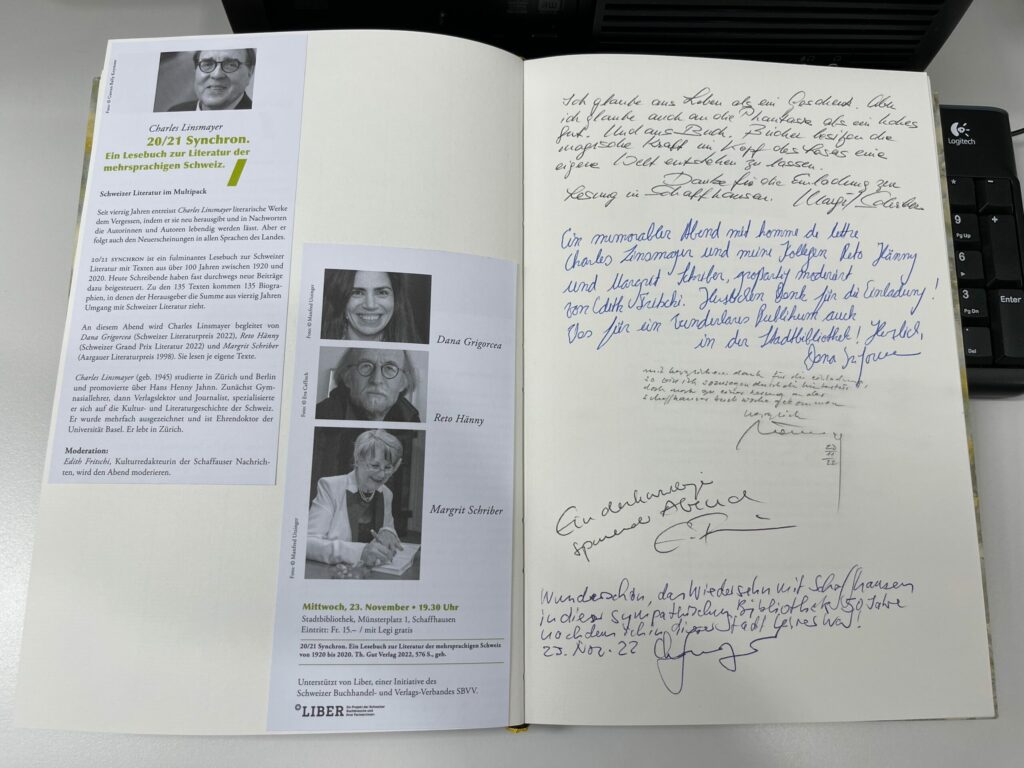 Foto: © Manfred Utzinger
Charles Linsmayer
20/21 Synchron.
Ein Lesebuch zur Literatur der
mehrsprachigen Schweiz.
Schweizer Literatur im Multipack
Seit vierzig Jahren entreisst Charles Linsmayer literarische Werke
dem Vergessen, indem er sie neu herausgibt und in Nachworten
die Autorinnen und Autoren lebendig werden lässt. Aber er
folgt auch den Neuerscheinungen in allen Sprachen des Landes.
20/21 SYNCHRON ist ein fulminantes Lesebuch zur Schweizer
Literatur mit Texten aus über 100 Jahren zwischen 1920 und
2020. Heute Schreibende haben fast durchwegs neue Beiträge
dazu beigesteuert. Zu den 135 Texten kommen 135 Biogra-
phien, in denen der Herausgeber die Summe aus vierzig Jahren
Umgang mit Schweizer Literatur zieht.
An diesem Abend wird Charles Linsmayer begleitet von
Dana Grigorcea (Schweizer Literaturpreis 2022), Reto Hänny
(Schweizer Grand Prix Literatur 2022) und Margrit Schriber
(Aargauer Literaturpreis 1998). Sie lesen je eigene Texte.
Charles Linsmayer (geb. 1945) studierte in Zürich und Berlin
und promovierte über Hans Henny Jahnn. Zunächst Gym-
nasiallehrer, dann Verlagslektor und Journalist, spezialisierte
er sich auf die Kultur- und Literaturgeschichte der Schweiz.
Er wurde mehrfach ausgezeichnet und ist Ehrendoktor der
Universität Basel. Er lebt in Zürich.
Moderation:
Edith Fritschi, Kulturredakteurin der Schaffauser Nachrich-
ten, wird den Abend moderieren.
Dana Grigorcea
Reto Hänny
Margrit Schriber
Foto: © Manfred Utzinger
Mittwoch, 23. November • 19.30 Uhr
Stadtbibliothek, Münsterplatz 1, Schaffhausen
Eintritt: Fr. 15.– / mit Legi gratis
20/21 Synchron. Ein Lesebuch zur Literatur der mehrsprachigen Schweiz
von 1920 bis 2020. Th. Gut Verlag 2022, 576 S., geb.
Unterstützt von Liber, einer Initiative des
Schweizer Buchhandel- und Verlags-Verbandes SBVV.
LIBER
Ich glaube ans Leben als ein Geschenk. Aber
ich glaube auch an die Phantasie als ein hohes
Gut. Und ans Buch. Bücher besitzen die
magische Kraft im Kopf des Lesers eine
eigene Welt entstehen zu lassen.
Danke für die Einladung zur
Lesung in Schaffhausen. Margrit Schriber
Ein memorabler Abend mit homme de lettre
Charles Linsmayer und meine Kollegen Reto Hänny
und Margrit Schriber, großartig moderiert
von Edith Fritschi. Herzlichen Dank für die Einladung!
Was für ein wunderbares Publikum auch
in der Stadtbibliothek! Herzlich,
Dana Grigorcea
mit herzlichem dank für die einladung,
doch noch zu einer lesung in der
herzlich
23
11
22
Ein
spannender Abend
Wunderschön, das Wiedersehn mit Schaffhausen
in dieser sympathischen Bibliothek 50 Jahre
nachdem ich in dieser Stadt
23. Nov. 22
Logitech
9
Pg Up
+
6
3
Pg Dn
Enter
Del